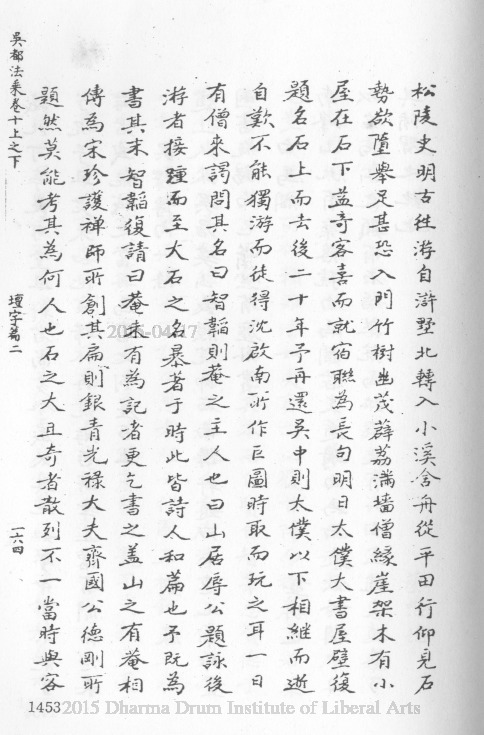 松陵史明古往游自滸墅北轉入小溪舍舟從平田行仰見石
勢欲墮舉足甚恐入門竹樹幽茂薜荔滿墻僧緣崖架木有小
屋在石下益奇客喜而就宿聯為長句明日太僕大書屋壁復
題名石上而去後二十年予再還吳中則太僕以下相繼而逝
自歎不能獨游而徒得沈啟南所作巨圖時取而玩之耳一日
有僧來謁問其名曰智韜則菴之主人也曰山居辱公題詠後
游者接踵而至大石之名暴著于時此皆詩人和篇也予既為
書其末智韜復請曰菴未有為記者更乞書之蓋山之有菴相
傳為宋珍護禅師所創其扁則銀青光祿大夫齊國公德剛所
題然莫能考其為何人也石之大且奇者散列不一當時與客
吳都法乘卷十上之下
壇字篇二
一六四
1453
2015 Dharma Drum Institute of Liberal Arts